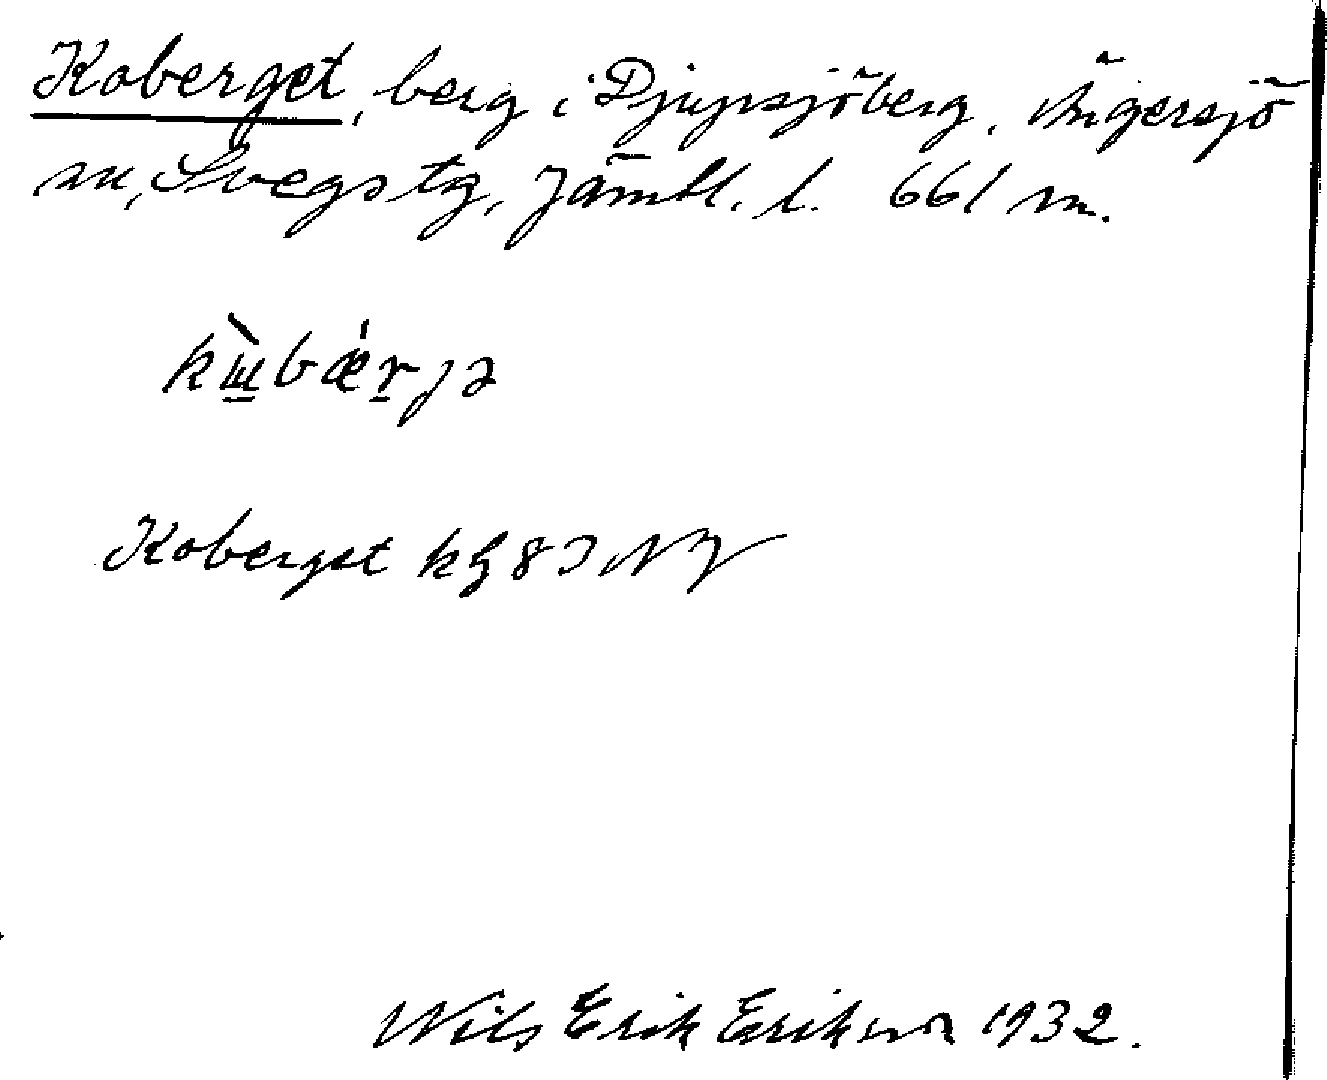 Koberget, berg i Djupsjöberg, Ängersjö
sn, Svegs tg, Jämtl. l. 661 m.
kɯ̀bǽrjə
Koberget
Nils Erik Eriksson 1932.